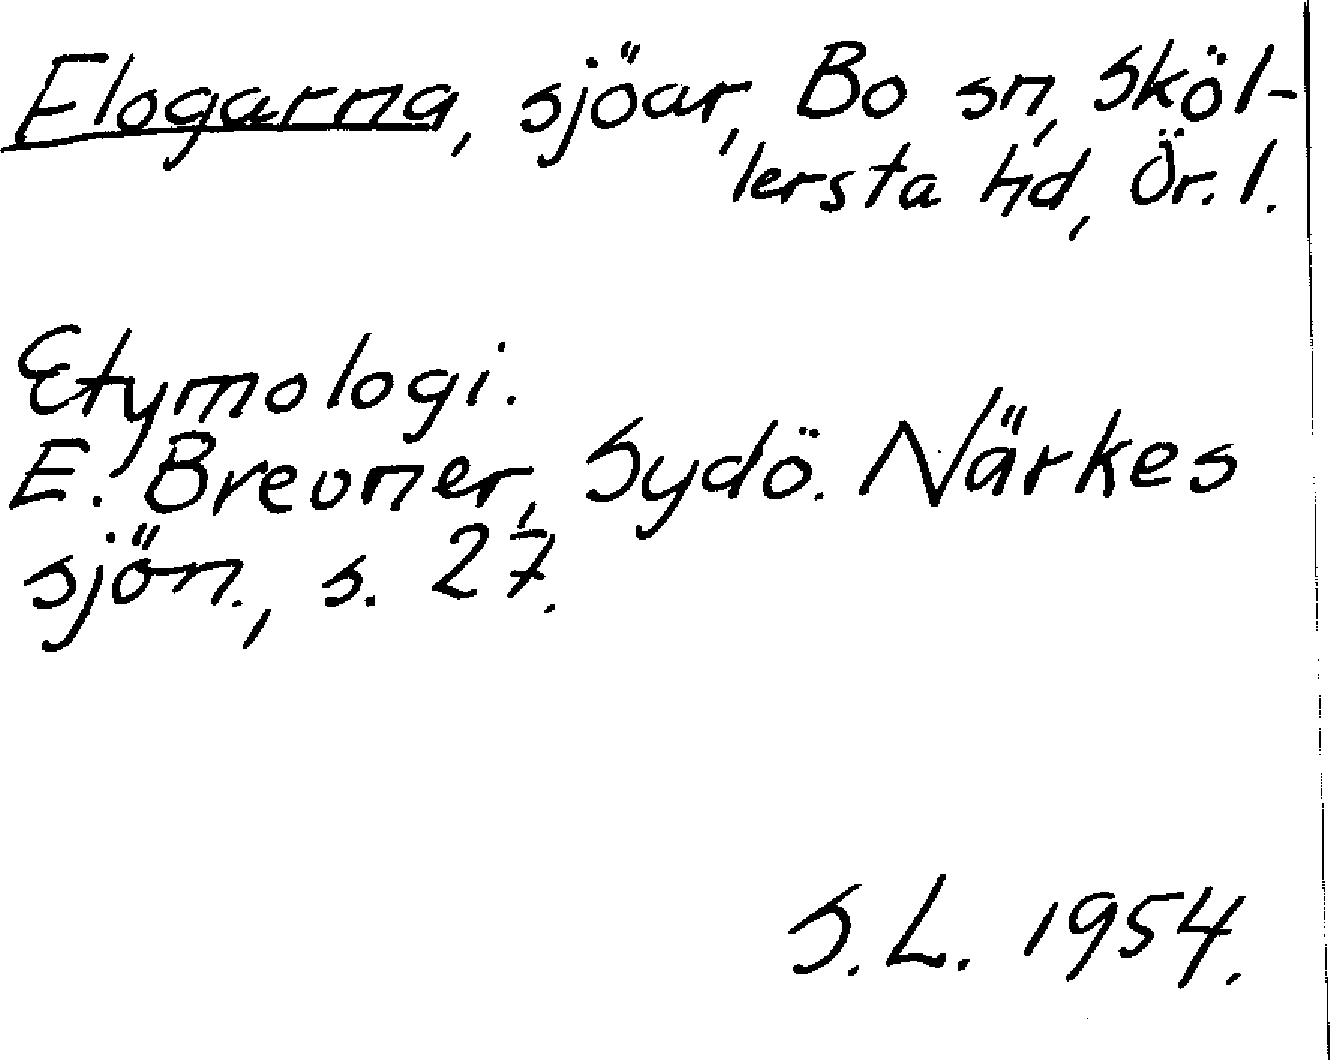 Elogarna, sjöar, Bo sn, Sköl-
lersta hd, Ör. l.
Etymologi.
E. Brevner, Sydö. Närkes
sjön., s. 27.
S. L. 1954.